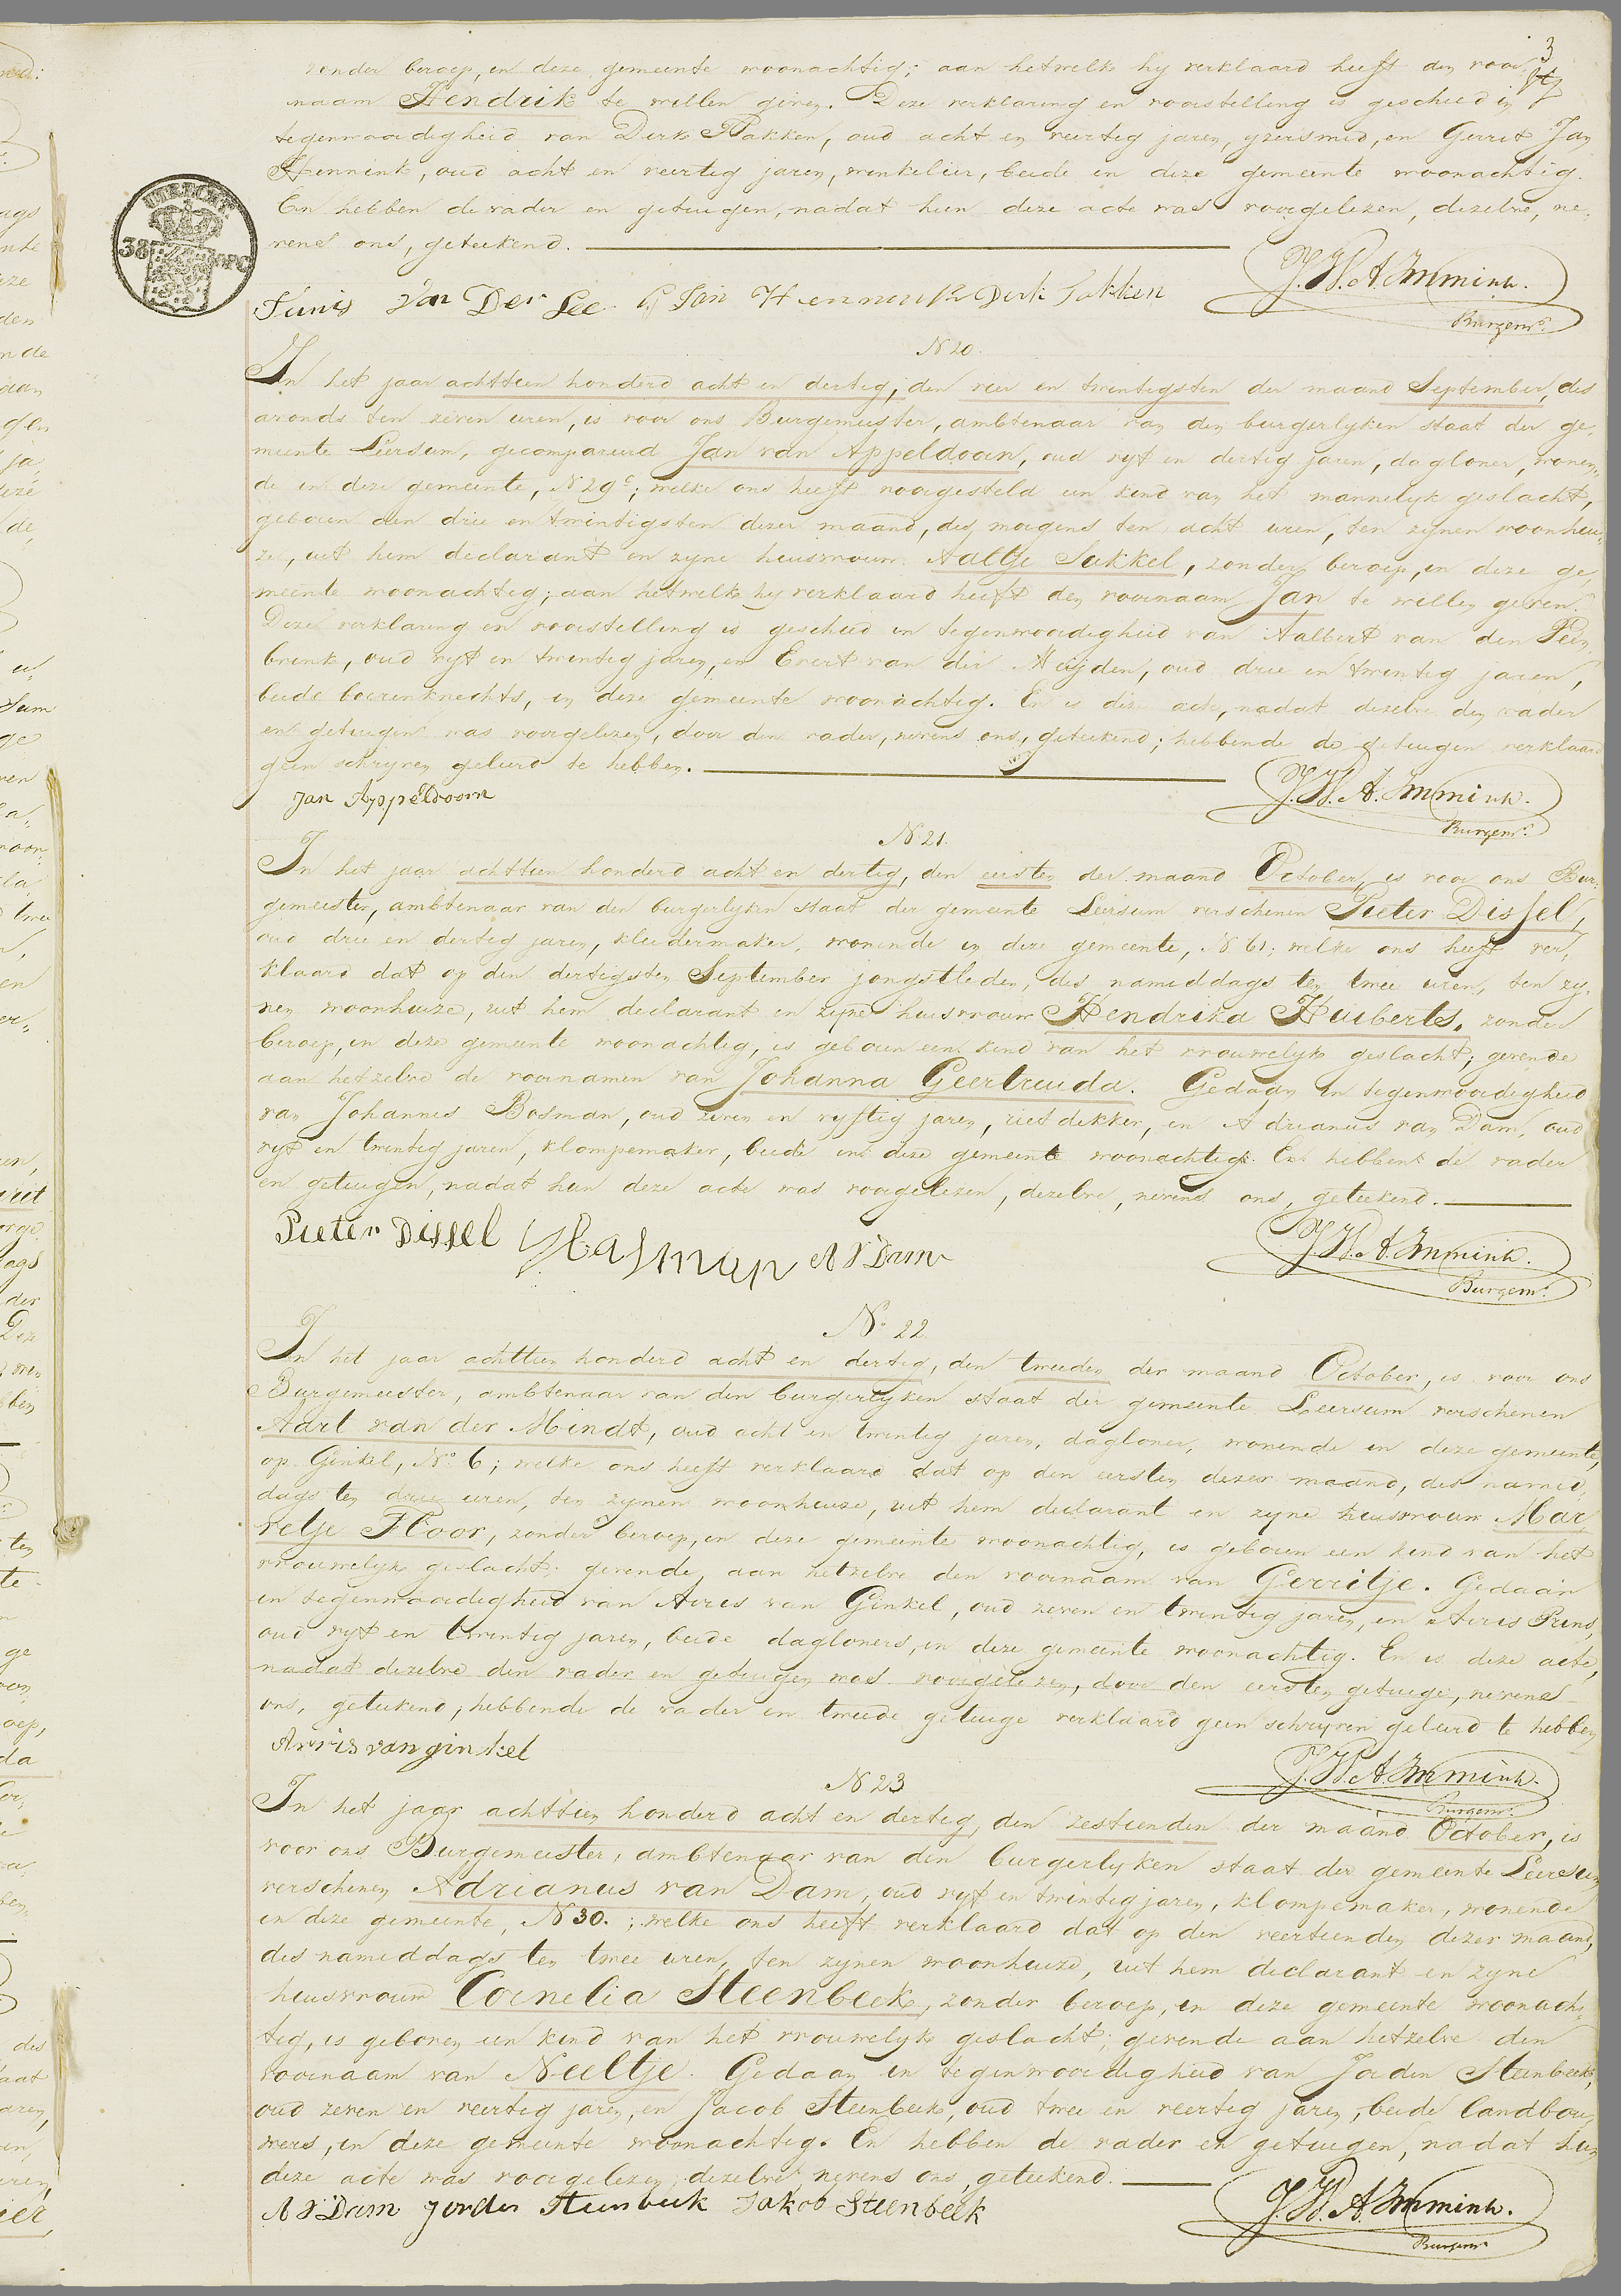 3
zonder beroep, in deze gemeente woonachtig; aan hetwelk hy verklaard heeft den voor-
naam Hendrik te willen geven. Deze verklaring en voorstelling is geschied in
tegenwoordigheid van Derk Takken, oud acht en veertig jaren, yzersmid, en Gerrit Jan
Hennink, oud acht en veertig jaren, winkelier, beide in deze gemeente woonachtig.
En hebben de vader en getuigen, nadat hun deze acte was voorgelezen, dezelve, ne-
vens ons, geteekend.
UTRECHT
38
Tunis van Der Lee G Jan Hennink Derk Takken J.W.A. Immink.
Burgemr.
N 20.
In het jaar achttien honderd acht en dertig, den vier en twintigsten der maand September, des
avonds ten zeven uren, is voor ons Burgemeester, ambtenaar van den burgerlyken staat der ge-
meente Leersum, gecompareerd Jan van Appeldoorn, oud vyf en dertig jaren, dagloner, wonen-
de in deze gemeente, N 29c; welke ons heeft voorgesteld een kind van het mannelyk geslacht,
geboren den drie en twintigsten dezer maand, des morgens ten acht uren, ten zynen woonhui-
ze, uit hem declarant en zyne huisvrouw Aaltje Sukkel, zonder beroep, in deze ge-
meente woonachtig; aan hetwelk hy verklaard heeft den voornaam Jan te willen geven.
Deze verklaring en voorstelling is geschied in tegenwoordigheid van Aalbert van den Peen-
brink, oud vyf en twintig jaren, en Evert van der Heijden, oud drie en twintig jaren,
beide boerenknechts, in deze gemeente woonachtig. En is deze acte, nadat dezelve den vader
en getuigen was voorgelezen, door den vader, nevens ons, geteekend; hebbende de getuigen verklaard
geen schryven geleerd te hebben.
Jan Appeldoorn J.W.A. Immink.
Burgemr.
N 21.
In het jaar achttien honderd acht en dertig, den eersten der maand October, is voor ons Bur-
gemeester, ambtenaar van den burgerlyken staat der gemeente Leersum verschenen Pieter Dissel,
oud drie en dertig jaren, kleedermaker, wonende in deze gemeente, N 61; welke ons heeft ver-
klaard dat op den dertigsten September jongstleden, des namiddags ten twee uren, ten zy-
nen woonhuize, uit hem declarant en zyne huisvrouw Hendrika Huiberts, zonder
beroep, in deze gemeente woonachtig, is geboren een kind van het vrouwelyk geslacht; gevende
aan hetzelve de voornamen van Johanna Geertruida. Gedaan in tegenwoordigheid
van Johannes Bosman, oud zeven en vyftig jaren, rietdekker, en Adrianus van Dam, oud
vyf en twintig jaren, klompemaker, beide in deze gemeente woonachtig. En hebben de vader
en getuigen, nadat hun deze acte was voorgelezen, dezelve, nevens ons, geteekend.
Pieter Dissel A V Dam J.W.A. Immink.
Burgemr.
No 22
In het jaar achttien honderd acht en dertig, den tweeden der maand October, is voor ons
Burgemeester, ambtenaar van den burgerlyken staat der gemeente Leersum verschenen
Aart van der Mindt, oud acht en twintig jaren, dagloner, wonende in deze gemeente,
op Ginkel, No 6; welke ons heeft verklaard dat op den eersten dezer maand, des namid-
dags ten drie uren, ten zynen woonhuize, uit hem declarant en zyne huisvrouw Mar-
retje Floor, zonder beroep, in deze gemeente woonachtig, is geboren een kind van het
vrouwelyk geslacht; gevende aan hetzelve den voornaam van Gerritje. Gedaan
in tegenwoordigheid van Arris van Ginkel, oud zeven en twintig jaren, en Arris Prins,
oud vyf en twintig jaren, beide dagloners, in deze gemeente woonachtig. En is deze acte,
nadat dezelve den vader en getuigen was voorgelezen, door den eersten getuige, nevens
ons, geteekend; hebbende de vader en tweede getuige verklaard geen schryven geleerd te hebben
Arris van ginkel J.W.A. Immink.
Burgemr.
N 23
In het jaar achttien honderd acht en dertig, den zestienden der maand October, is
voor ons Burgemeester, ambtenaar van den burgerlyken staat der gemeente Leersum
verschenen Adrianus van Dam, oud vyf en twintig jaren, klompemaker, wonende
in deze gemeente, N 30.; welke ons heeft verklaard dat op den veertienden dezer maand,
des namiddags ten twee uren, ten zynen woonhuize, uit hem declarant en zyne
huisvrouw Cornelia Steenbeek, zonder beroep, in deze gemeente woonach-
tig, is geboren een kind van het vrouwelyk geslacht; gevende aan hetzelve den
voornaam van Neeltje. Gedaan in tegenwoordigheid van Jorden Steenbeek,
oud zeven en veertig jaren, en Jacob Steenbeek, oud twee en veertig jaren, beide landbou-
wers, in deze gemeente woonachtig. En hebben de vader en getuigen, nadat hun
deze acte was voorgelezen, dezelve, nevens ons, geteekend.
A V Dam Jorden Steenbeek Jakob Steenbeek J.W.A. Immink.
Burgemr.